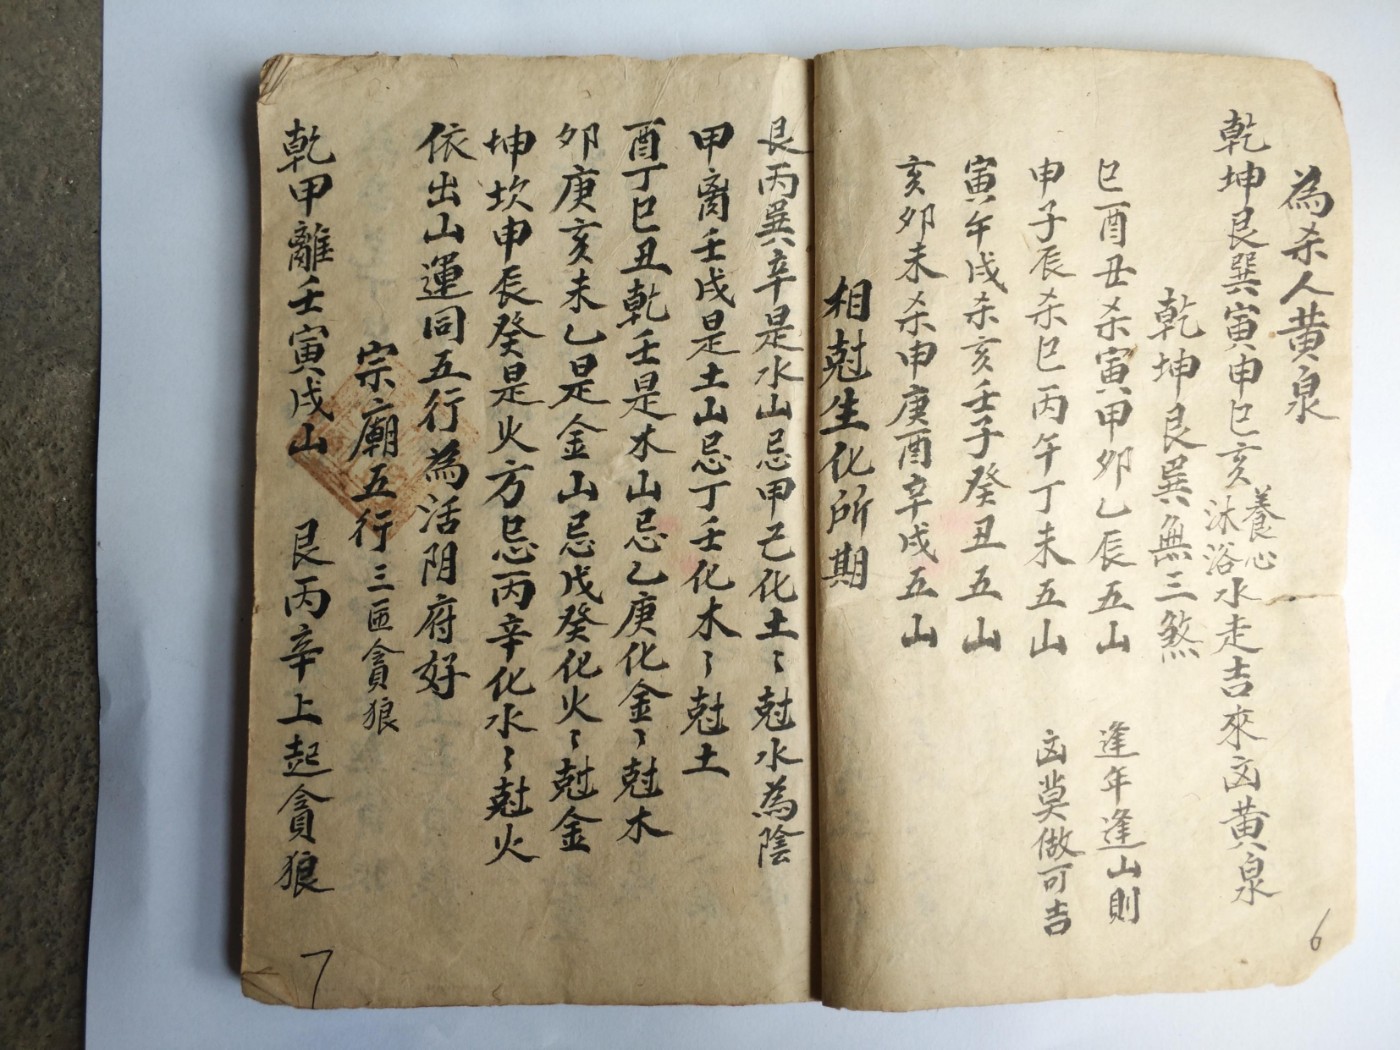 為杀人黄泉
乾坤艮巽寅申巳亥養心沐浴水走吉來凶黄泉
乾坤艮巽無三煞
巳酉丑杀寅甲夘乙辰五山 逢年逢山則
申子辰杀巳丙午丁未五山 凶莫做可吉
寅午戌杀亥壬子癸丑五山
亥夘未杀申庚酉辛戌五山
相尅生化所期
6
艮丙巽辛是水山忌甲己化土〻尅水為陰
甲离壬戌是土山忌丁壬化木〻尅土
酉丁巳丑乾壬是木山忌乙庚化金〻尅木
夘庚亥未乙是金山忌戊癸化火〻尅金
坤坎申辰癸是火方忌丙辛化水〻尅火
依出山運同五行為活阴府好
宗廟五行三匝貪狼
乾甲離壬寅戌山 艮丙辛上起貪狼
7